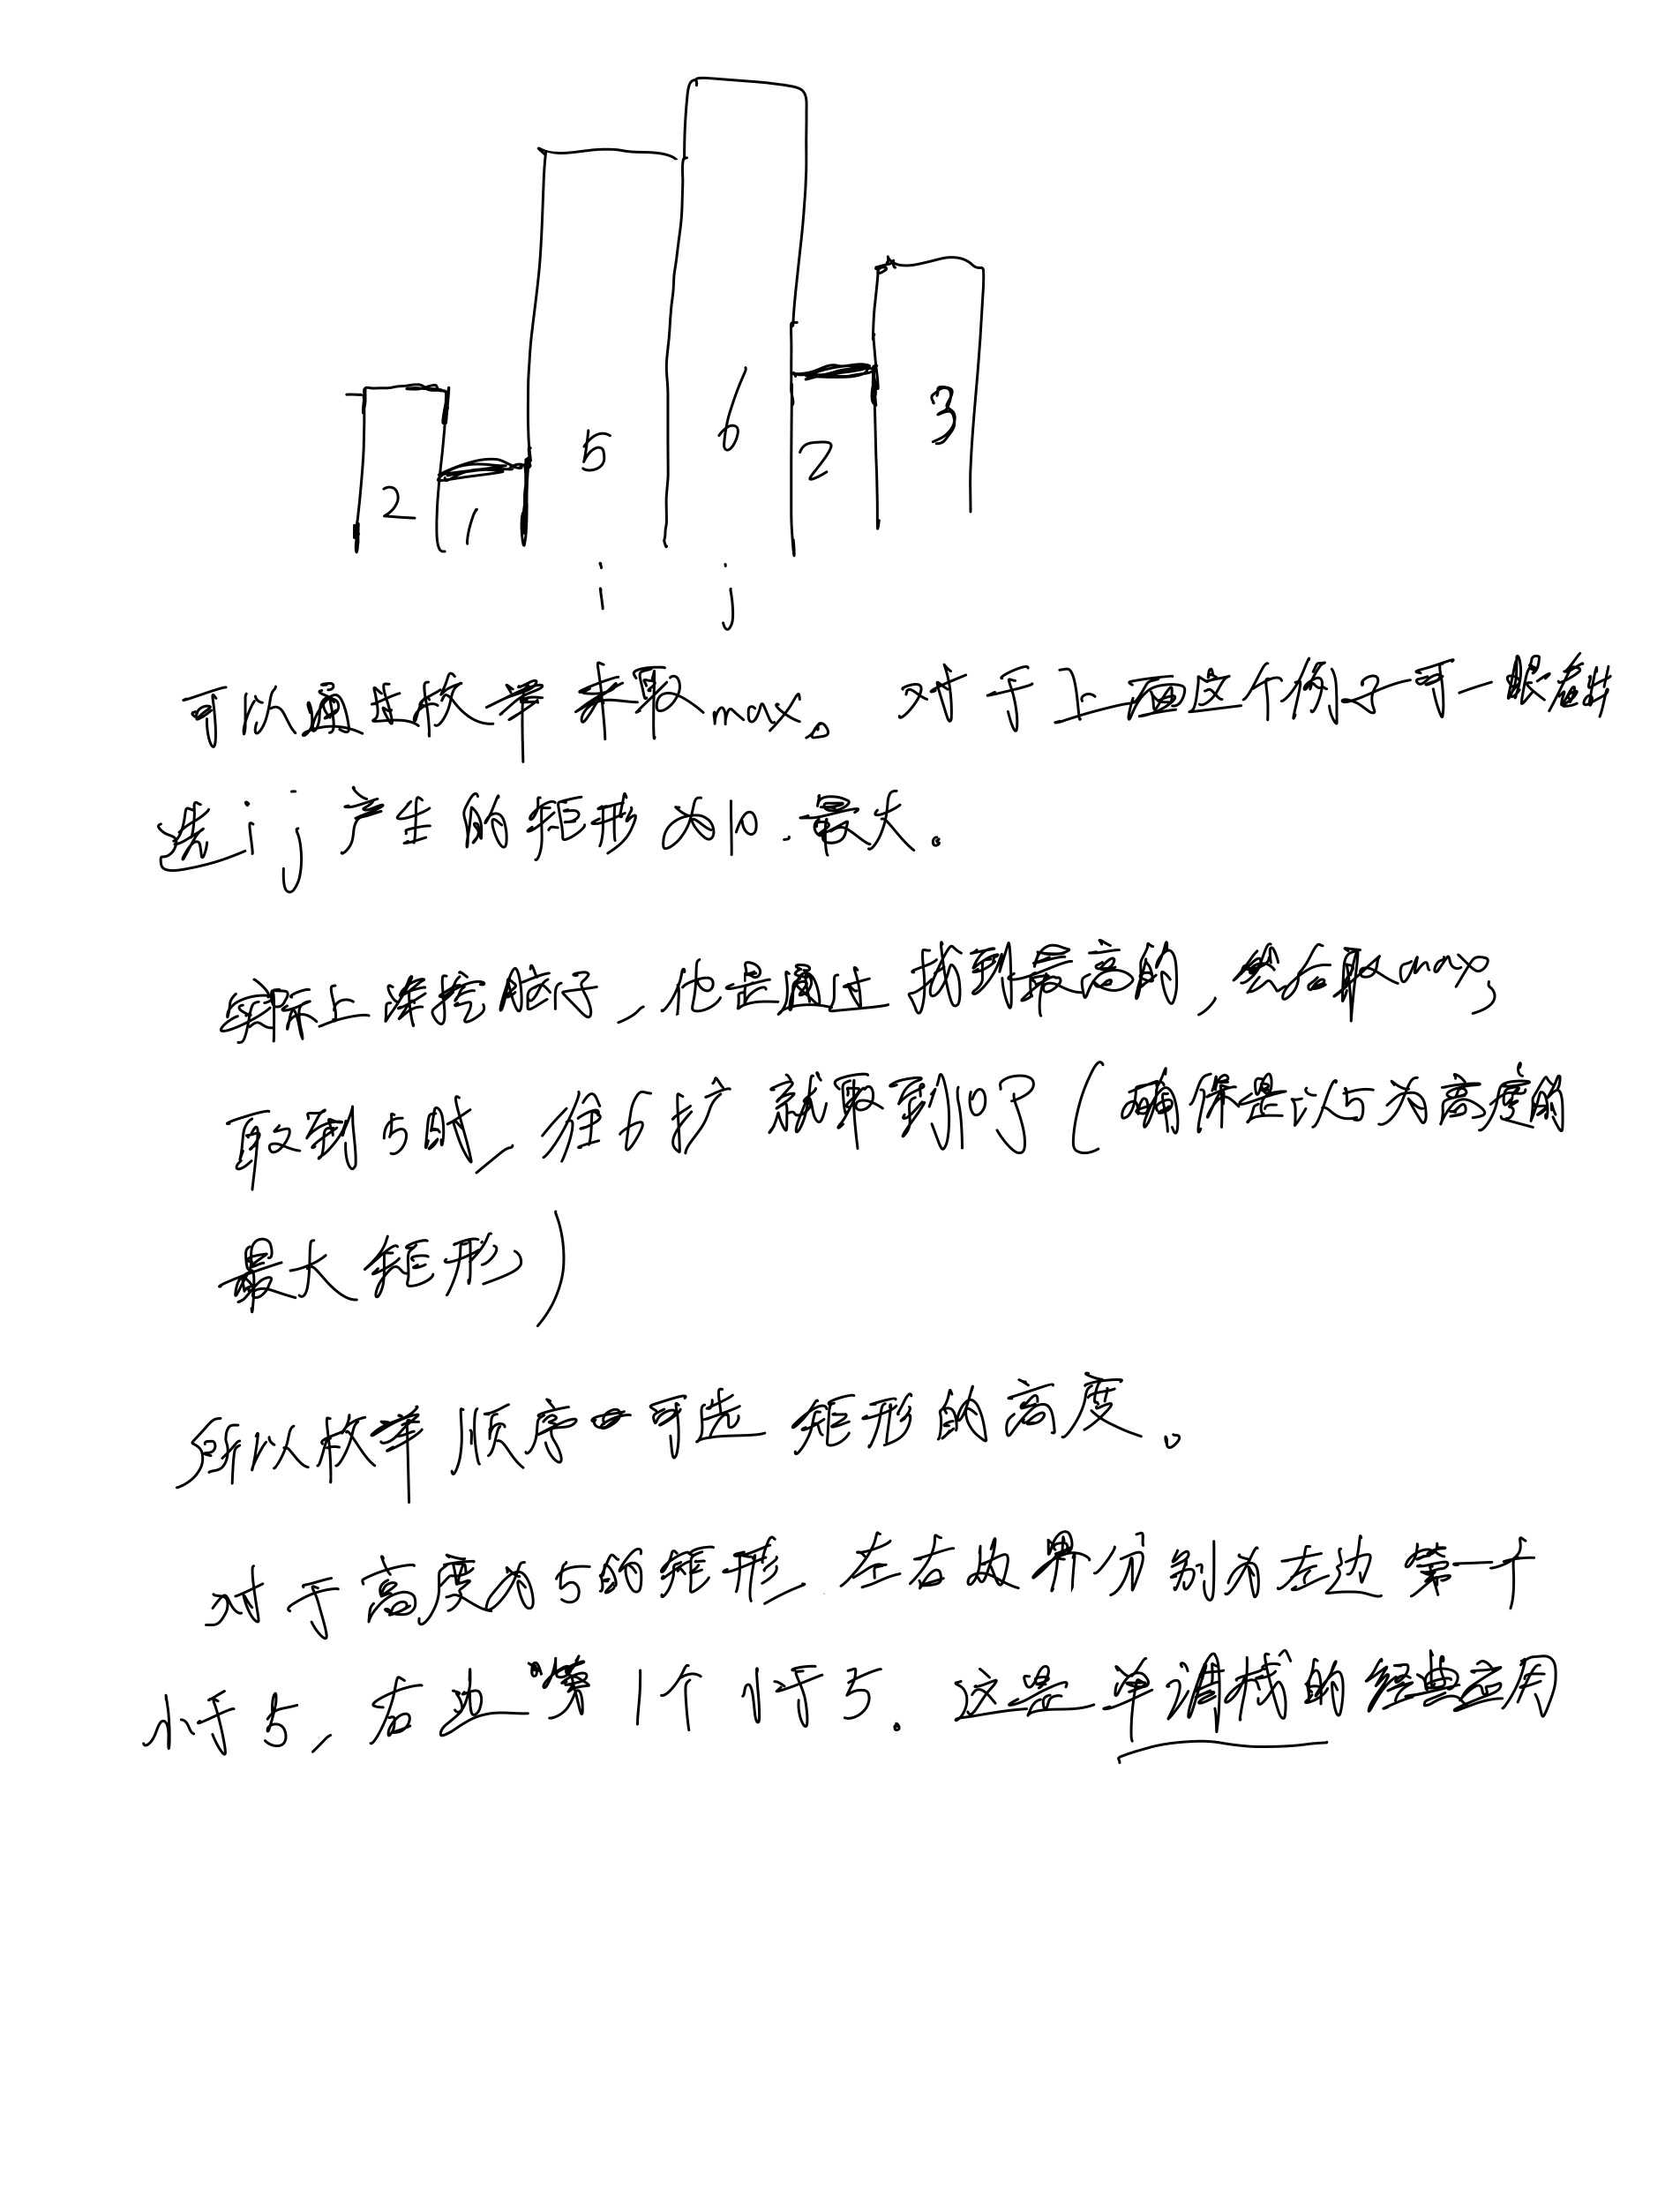 2 1 5 6 2 3
i j
可以通过枚举来取max。对于上面这个例子可一眼看出
选 i j 产生的矩形为10.最大。
实际上掩抡脑子,他是通过找到最高的,然后取max,
取到5时,往6扩就取到10了(确保是以5为高度的
最大矩形)
所以枚举顺序可选矩形的高度。
对于高度为5的矩形,左右边界分别为左边第一个
小于5,右边第1个小于5.这是单调栈的经典应用